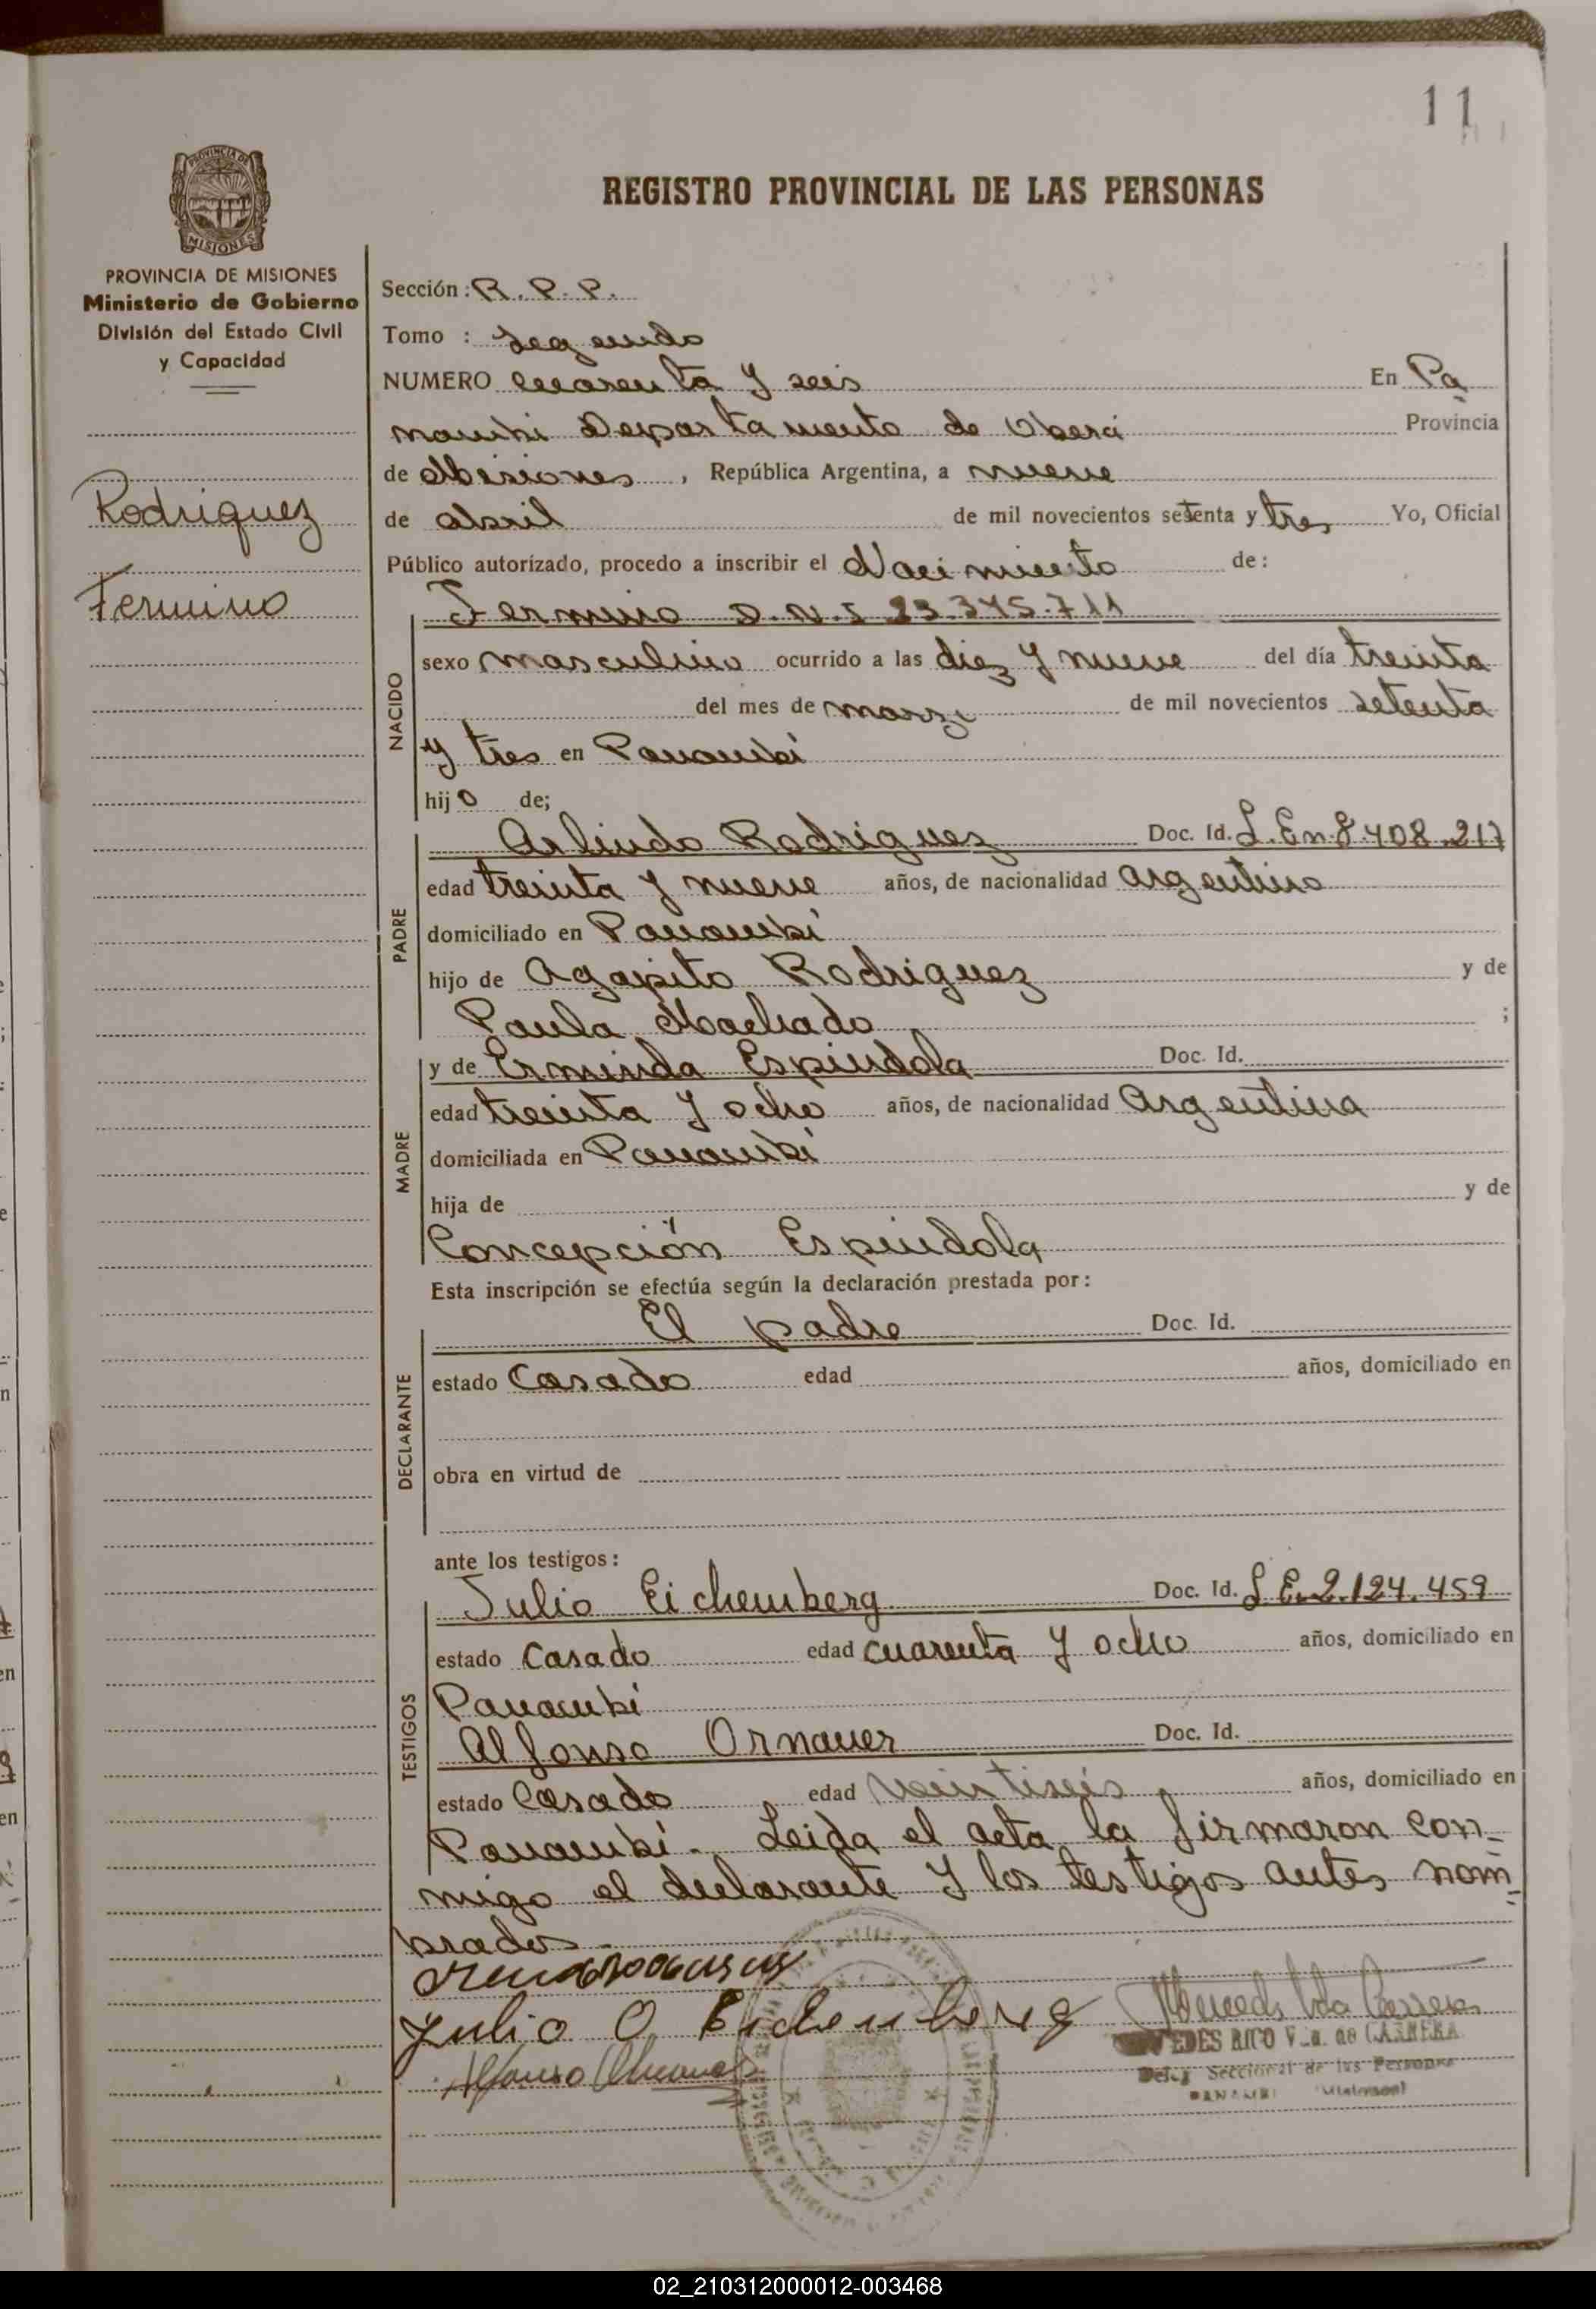 11
REGISTRO PROVINCIAL DE LAS PERSONAS
PROVINCIA DE
MISIONES
PROVINCIA DE MISIONES
Ministerio de Gobierno
División del Estado Civil
y Capacidad
Rodriguez
Fermino
Sección: R. P. P.
Tomo : Segundo
NUMERO cuarenta y seis En Pa
nambi Departamento de Oberá Provincia
de Misiones, República Argentina, a nueve
de abril de mil novecientos setenta y tres Yo, Oficial
Público autorizado, procedo a inscribir el Nacimiento de:
NACIDO
Fermino D.N.I 23.345.711
sexo masculino ocurrido a las diez y nueve del día treinta
del mes de marzo de mil novecientos setenta
y tres en Panambí
hijo de;
PADRE
Arlindo Rodriguez Doc. Id. L.En.8.408.217
edad treinta y nueve años, de nacionalidad argentino
domiciliado en Panambí
hijo de Agapito Rodriguez y de
Paula Machado ;
MADRE
y de Erminda Espindola Doc. Id.
edad treinta y ocho años, de nacionalidad Argentina
domiciliada en Panambí
hija de y de
Concepción Espindola
Esta inscripción se efectúa según la declaración prestada por:
DECLARANTE
El padre Doc. Id.
estado Casado edad años, domiciliado en
obra en virtud de
ante los testigos:
TESTIGOS
Julio Eichemberg Doc. Id. L.E.2.124.459
estado casado edad cuarenta y ocho años, domiciliado en
Panambí
Alfonso Ornauer Doc. Id.
estado Casado edad veintiseis años, domiciliado en
Panambí. Leida el acta la firmaron con-
migo el declarante y los testigos antes nom-
brados.
Julio O. Eichemberg
Alfonso
Mercedes Vda Carrera
RICO V_a. de CARRERA
Seccional de las Personas
PANAMBI (Misiones)
02_210312000012-003468